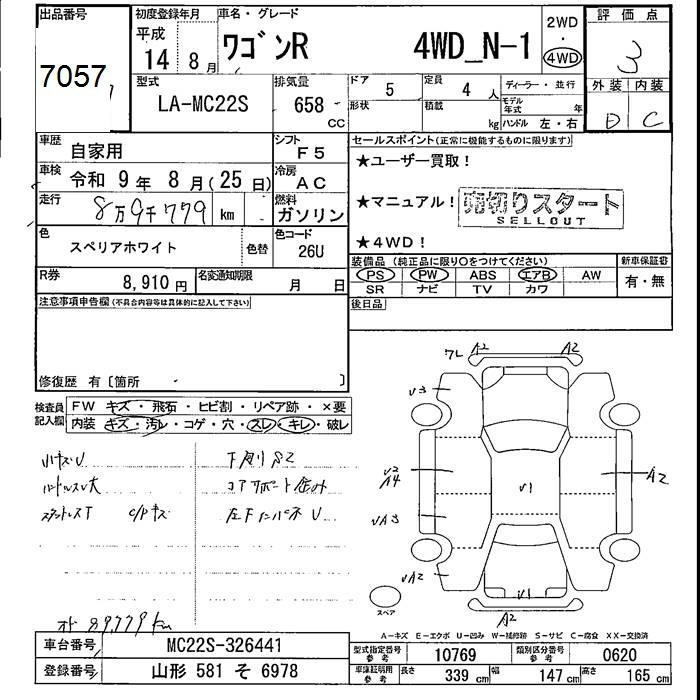 出品番号
7057
初度登録年月
平成
14年 8月
車名・グレード
ワゴンR 4WD_N-1
2WD
・
4WD
評価点
3
型式
LA-MC22S
排気量
658
CC
ドア 5
定員 4 人
ディーラー・並行
形状
積載 kg
モデル年式 年
ハンドル 左・右
外装 内装
D C
車歴
自家用
シフト
F5
車検
令和 9年 8月(25日)
冷房
AC
走行
8万9千779 km
燃料
ガソリン
色
スペリアホワイト
色替
色コード
26U
R券
8,910円
名変通知期限
月 日
セールスポイント(正常に機能するものに限ります)
★ユーザー買取!
★マニュアル!
売切りスタート
SELLOUT
★4WD!
装備品 (純正品に限り○をつけてください)
PS PW ABS エアB AW
SR ナビ TV カワ
新車保証書
有・無
後日品
注意事項申告欄(不具合内容等は具体的に記入して下さい)
修復歴 有〔箇所 〕
検査員
記入欄
FW キズ・飛石・ヒビ割・リペア跡・×要
内装 キズ・汚レ・コゲ・穴・スレ・キレ・破レ
小キズU
下廻りS2
コアサポート歪み
C/Pキズ
オド 89779km
7L A2 A2
U3
U2
A4
U1
A2
UA3
UA2
U1
A2
スペア
A-キズ E-エクボ U-凹み W-補修跡 S-サビ C-腐食 XX-交換済
車台番号
MC22S-326441
登録番号
山形 581 そ 6978
型式指定番号
参考
10769
類別区分番号
参考
0620
車庫証明用
参考
長さ 339 cm
幅 147 cm
高さ 165 cm